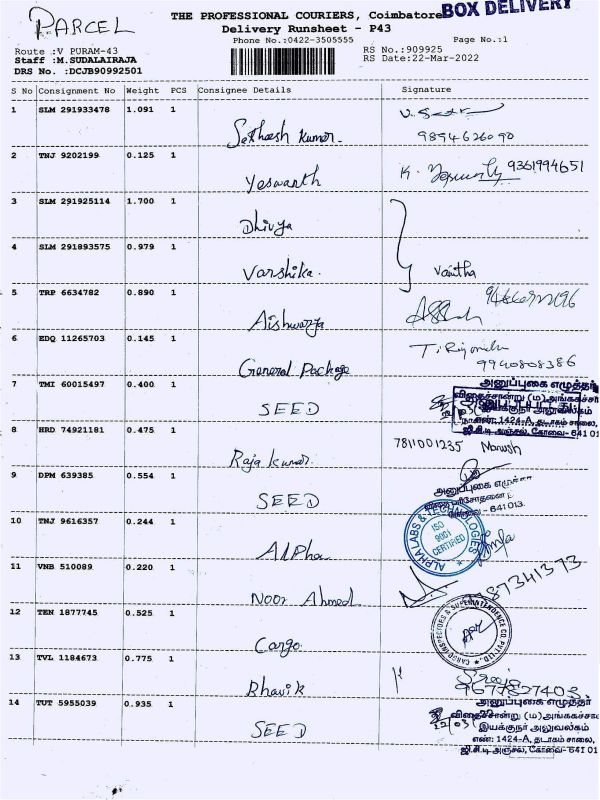 PARCEL
THE PROFESSIONAL COURIERS, Coimbatore
BOX DELIVERY
Delivery Runsheet - P43
Phone No.:0422-3505555 Page No.:1
Route :V PURAM-43 RS No.:909925
Staff :M.SUDALAIRAJA RS Date:22-Mar-2022
DRS No. :DCJB90992501
S No Consignment No Weight PCS Consignee Details Signature
1 SLM 291933478 1.091 1
Sathesh Kumar. 9894626090
2 TNJ 9202199 0.125 1
Yeswanth K. 9361994651
3 SLM 291925114 1.700 1
Dhivya
4 SLM 291893575 0.979 1
Varshika. Vanitha
5 TRP 6634782 0.890 1
Aishwarya
6 EDQ 11265703 0.145 1
General Package 9940808386
7 TMI 60015497 0.400 1
SEED
அனுப்புகை எழுத்தர்
விதைச்சான்று (ம) அங்ககச்சா
இயக்குநர் அலுவலகம்
1424-A, தடாகம் சாலை,
ஜி.சி.டி அஞ்சல், கோவை- 641 01
8 HRD 74921181 0.475 1
Raja Kumar. 7811001235
9 DPM 639385 0.554 1
SEED
அனுப்புகை
641 013.
10 TNJ 9616357 0.244 1
Alpha
ALPHA LABS & TECHNOLOGIES
ISO
9001
CERTIFIED
11 VNB 510089 0.220 1
Noor Ahmed
12 TEN 1877745 0.525 1
Cargo
CARGO INSPECTORS & SUPERINTENDANCE CO. PVT. LTD.
13 TVL 1184673 0.775 1
Bhavik 9677827403
14 TUT 5955039 0.935 1
SEED
அனுப்புகை எழுத்தர்
விதைச்சான்று (ம) அங்ககச்சா
இயக்குநர் அலுவலகம்
எண்: 1424-A, தடாகம் சாலை,
ஜி.சி.டி அஞ்சல், கோவை- 641 01